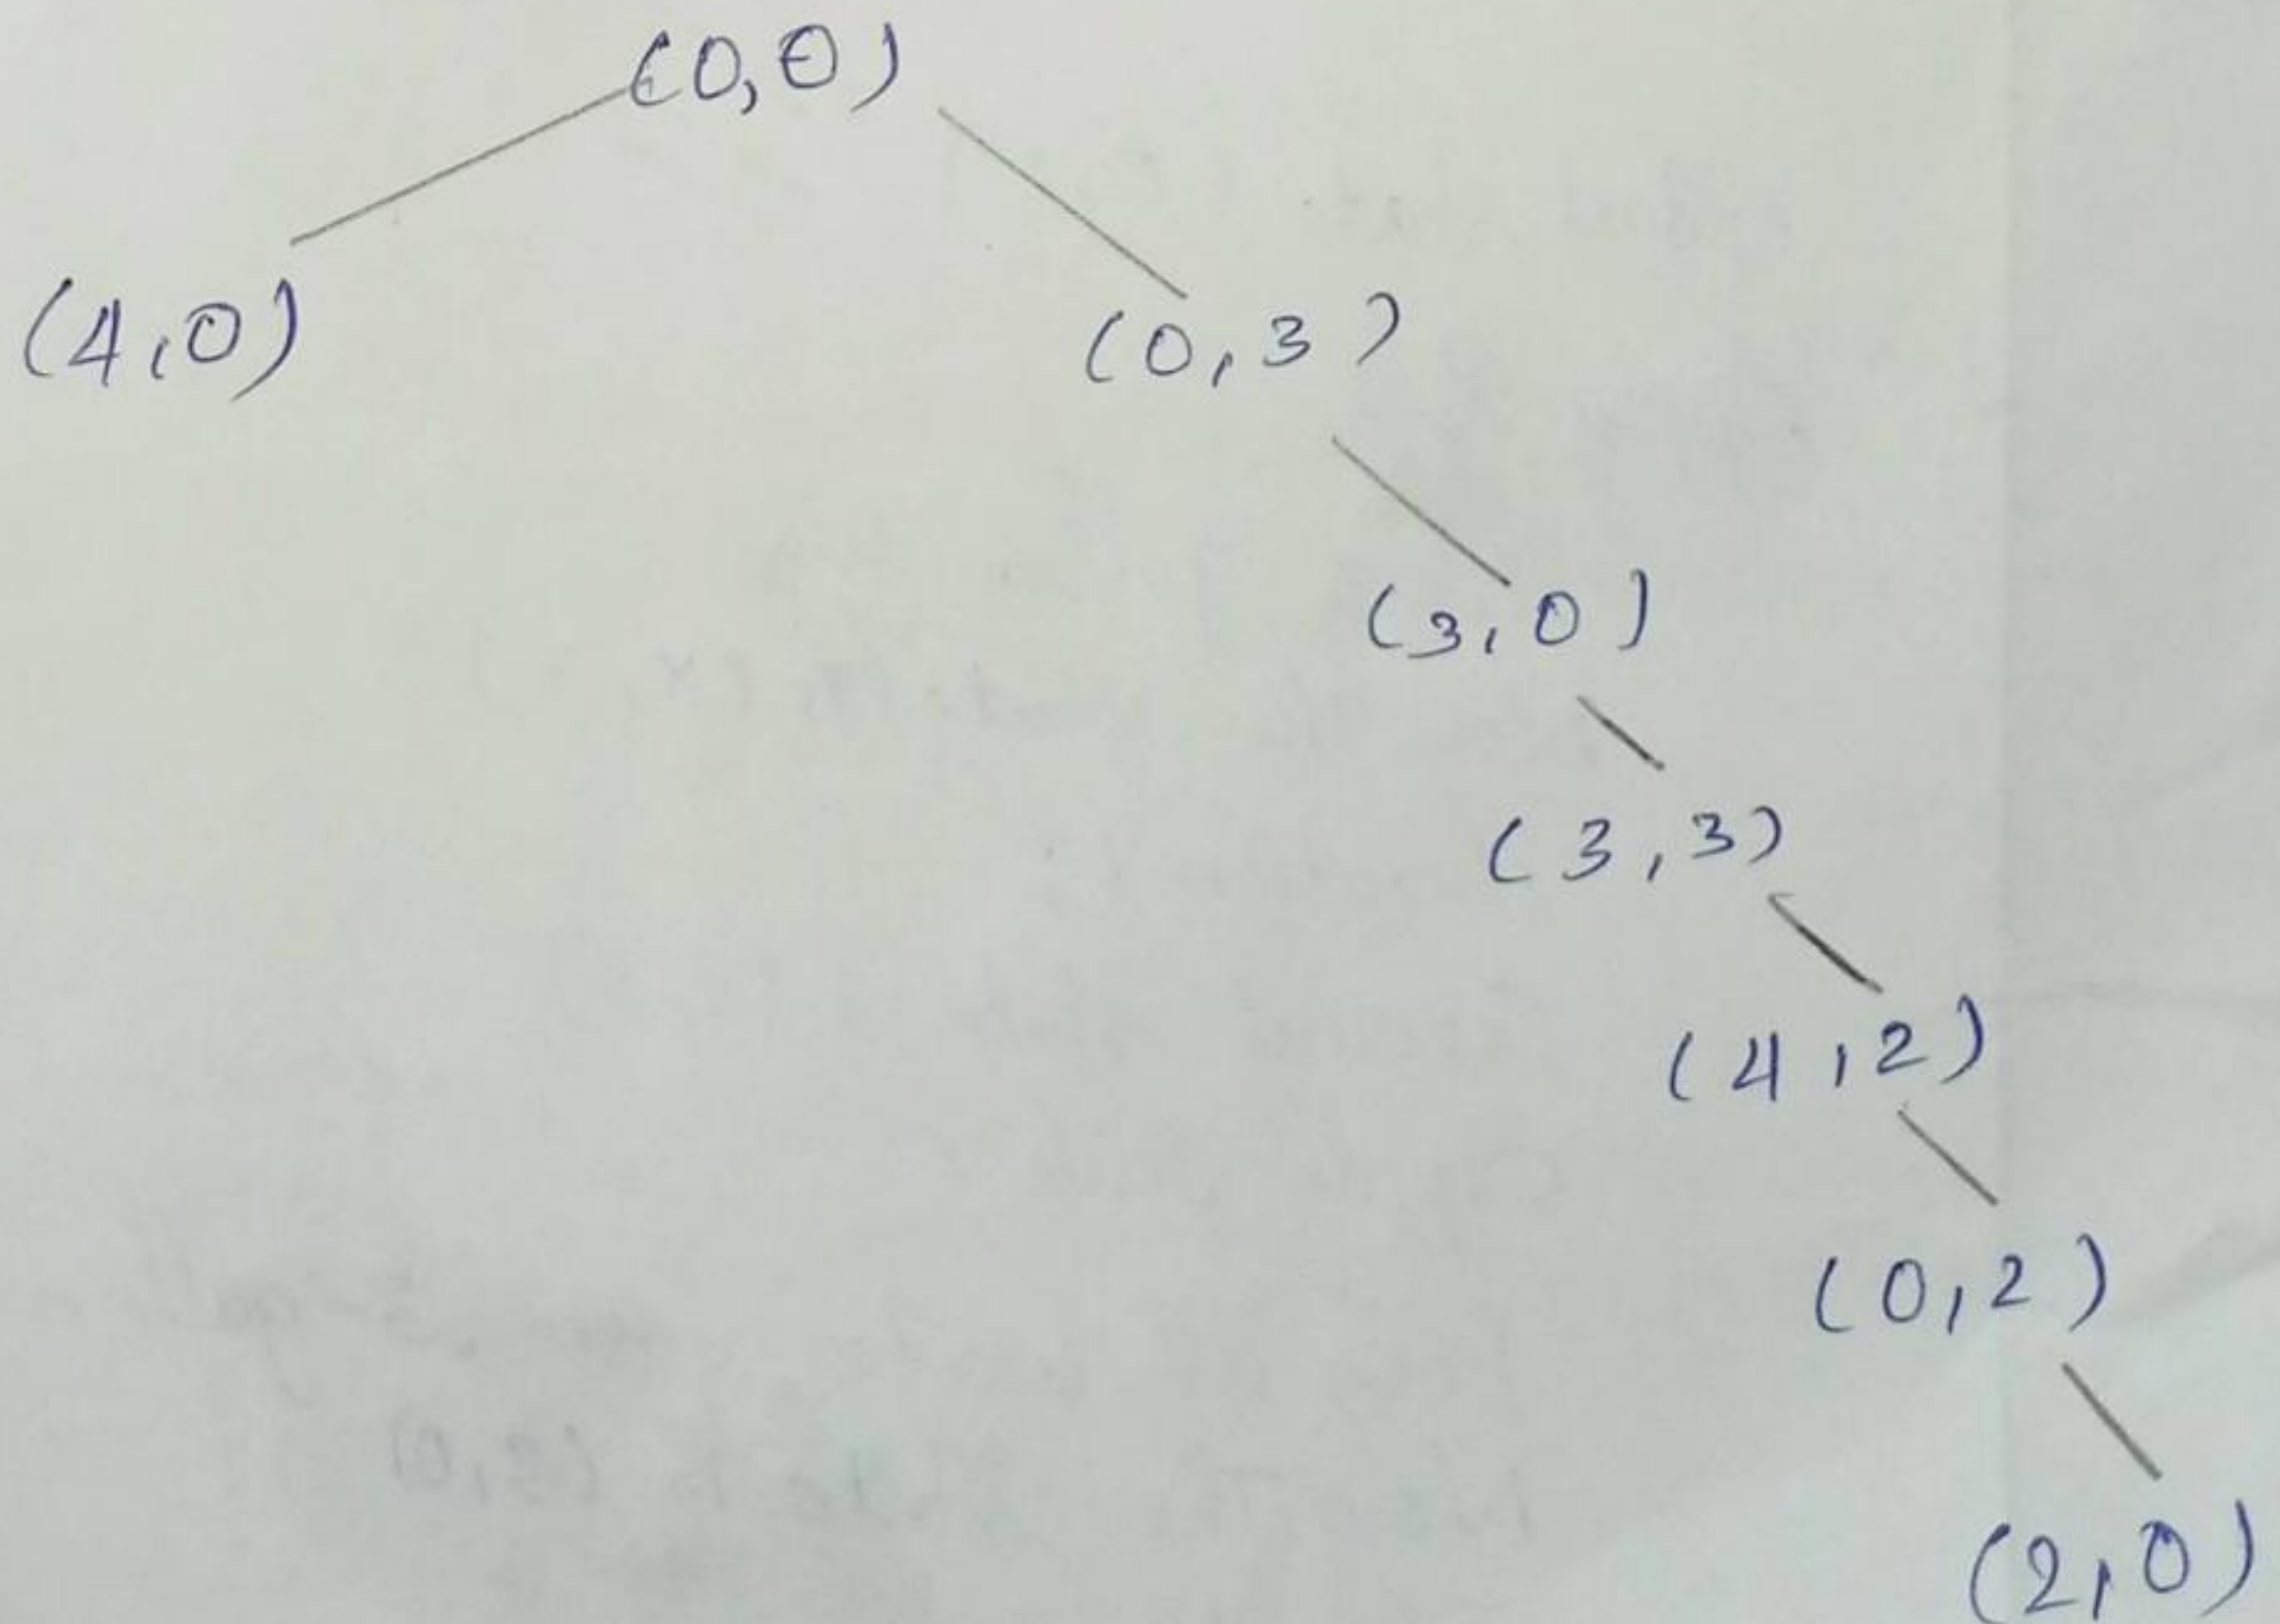 (0,0)
(4,0)
(0,3)
(3,0)
(3,3)
(4,2)
(0,2)
(2,0)